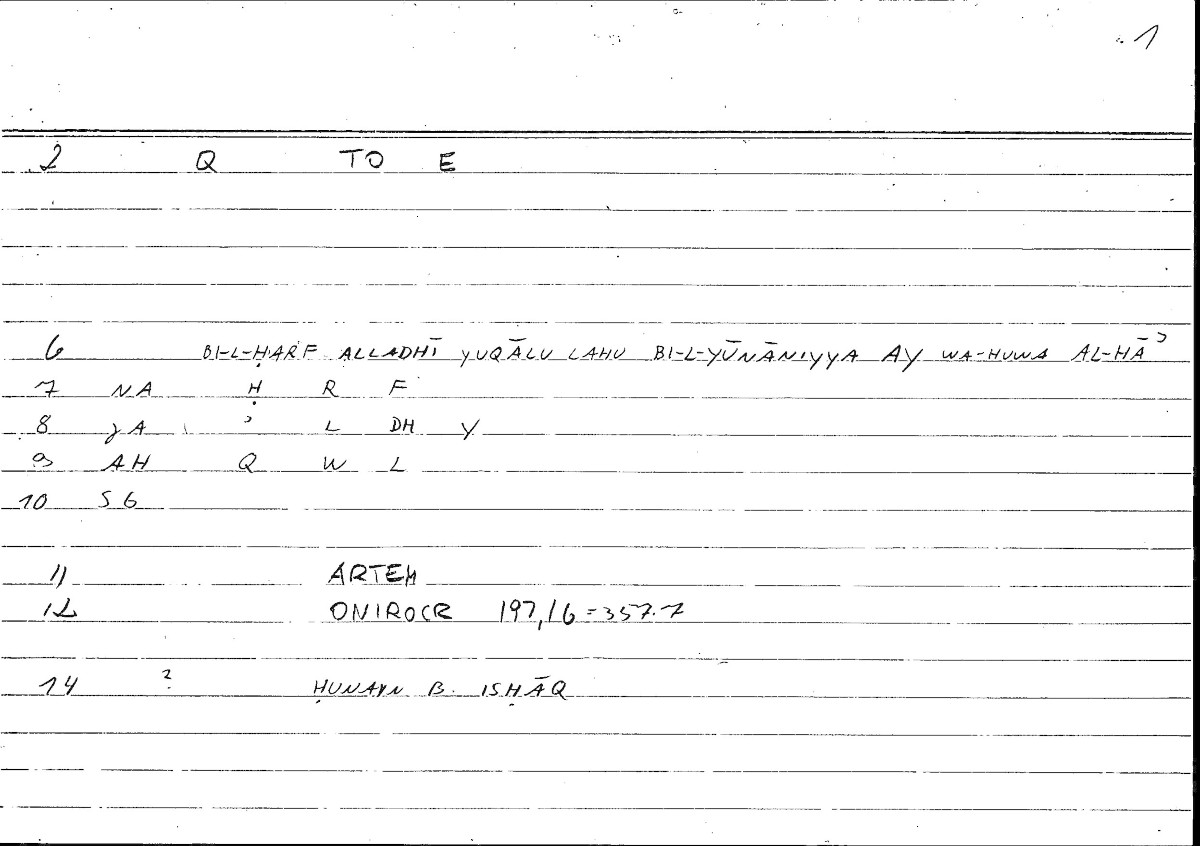 1
2 Q TO E
6 BI-L-ḤARF ALLADHĪ YUQĀLU LAHU BI-L-YŪNĀNIYYA AY WA-HUWA AL-HĀʾ
7 NA Ḥ R F
8 JA ʾ L DH Y
9 AH Q W L
10 SG
11 ARTEM
12 ONIROCR 197,16=357.7
14 ? ḤUNAYN B. ISḤĀQ